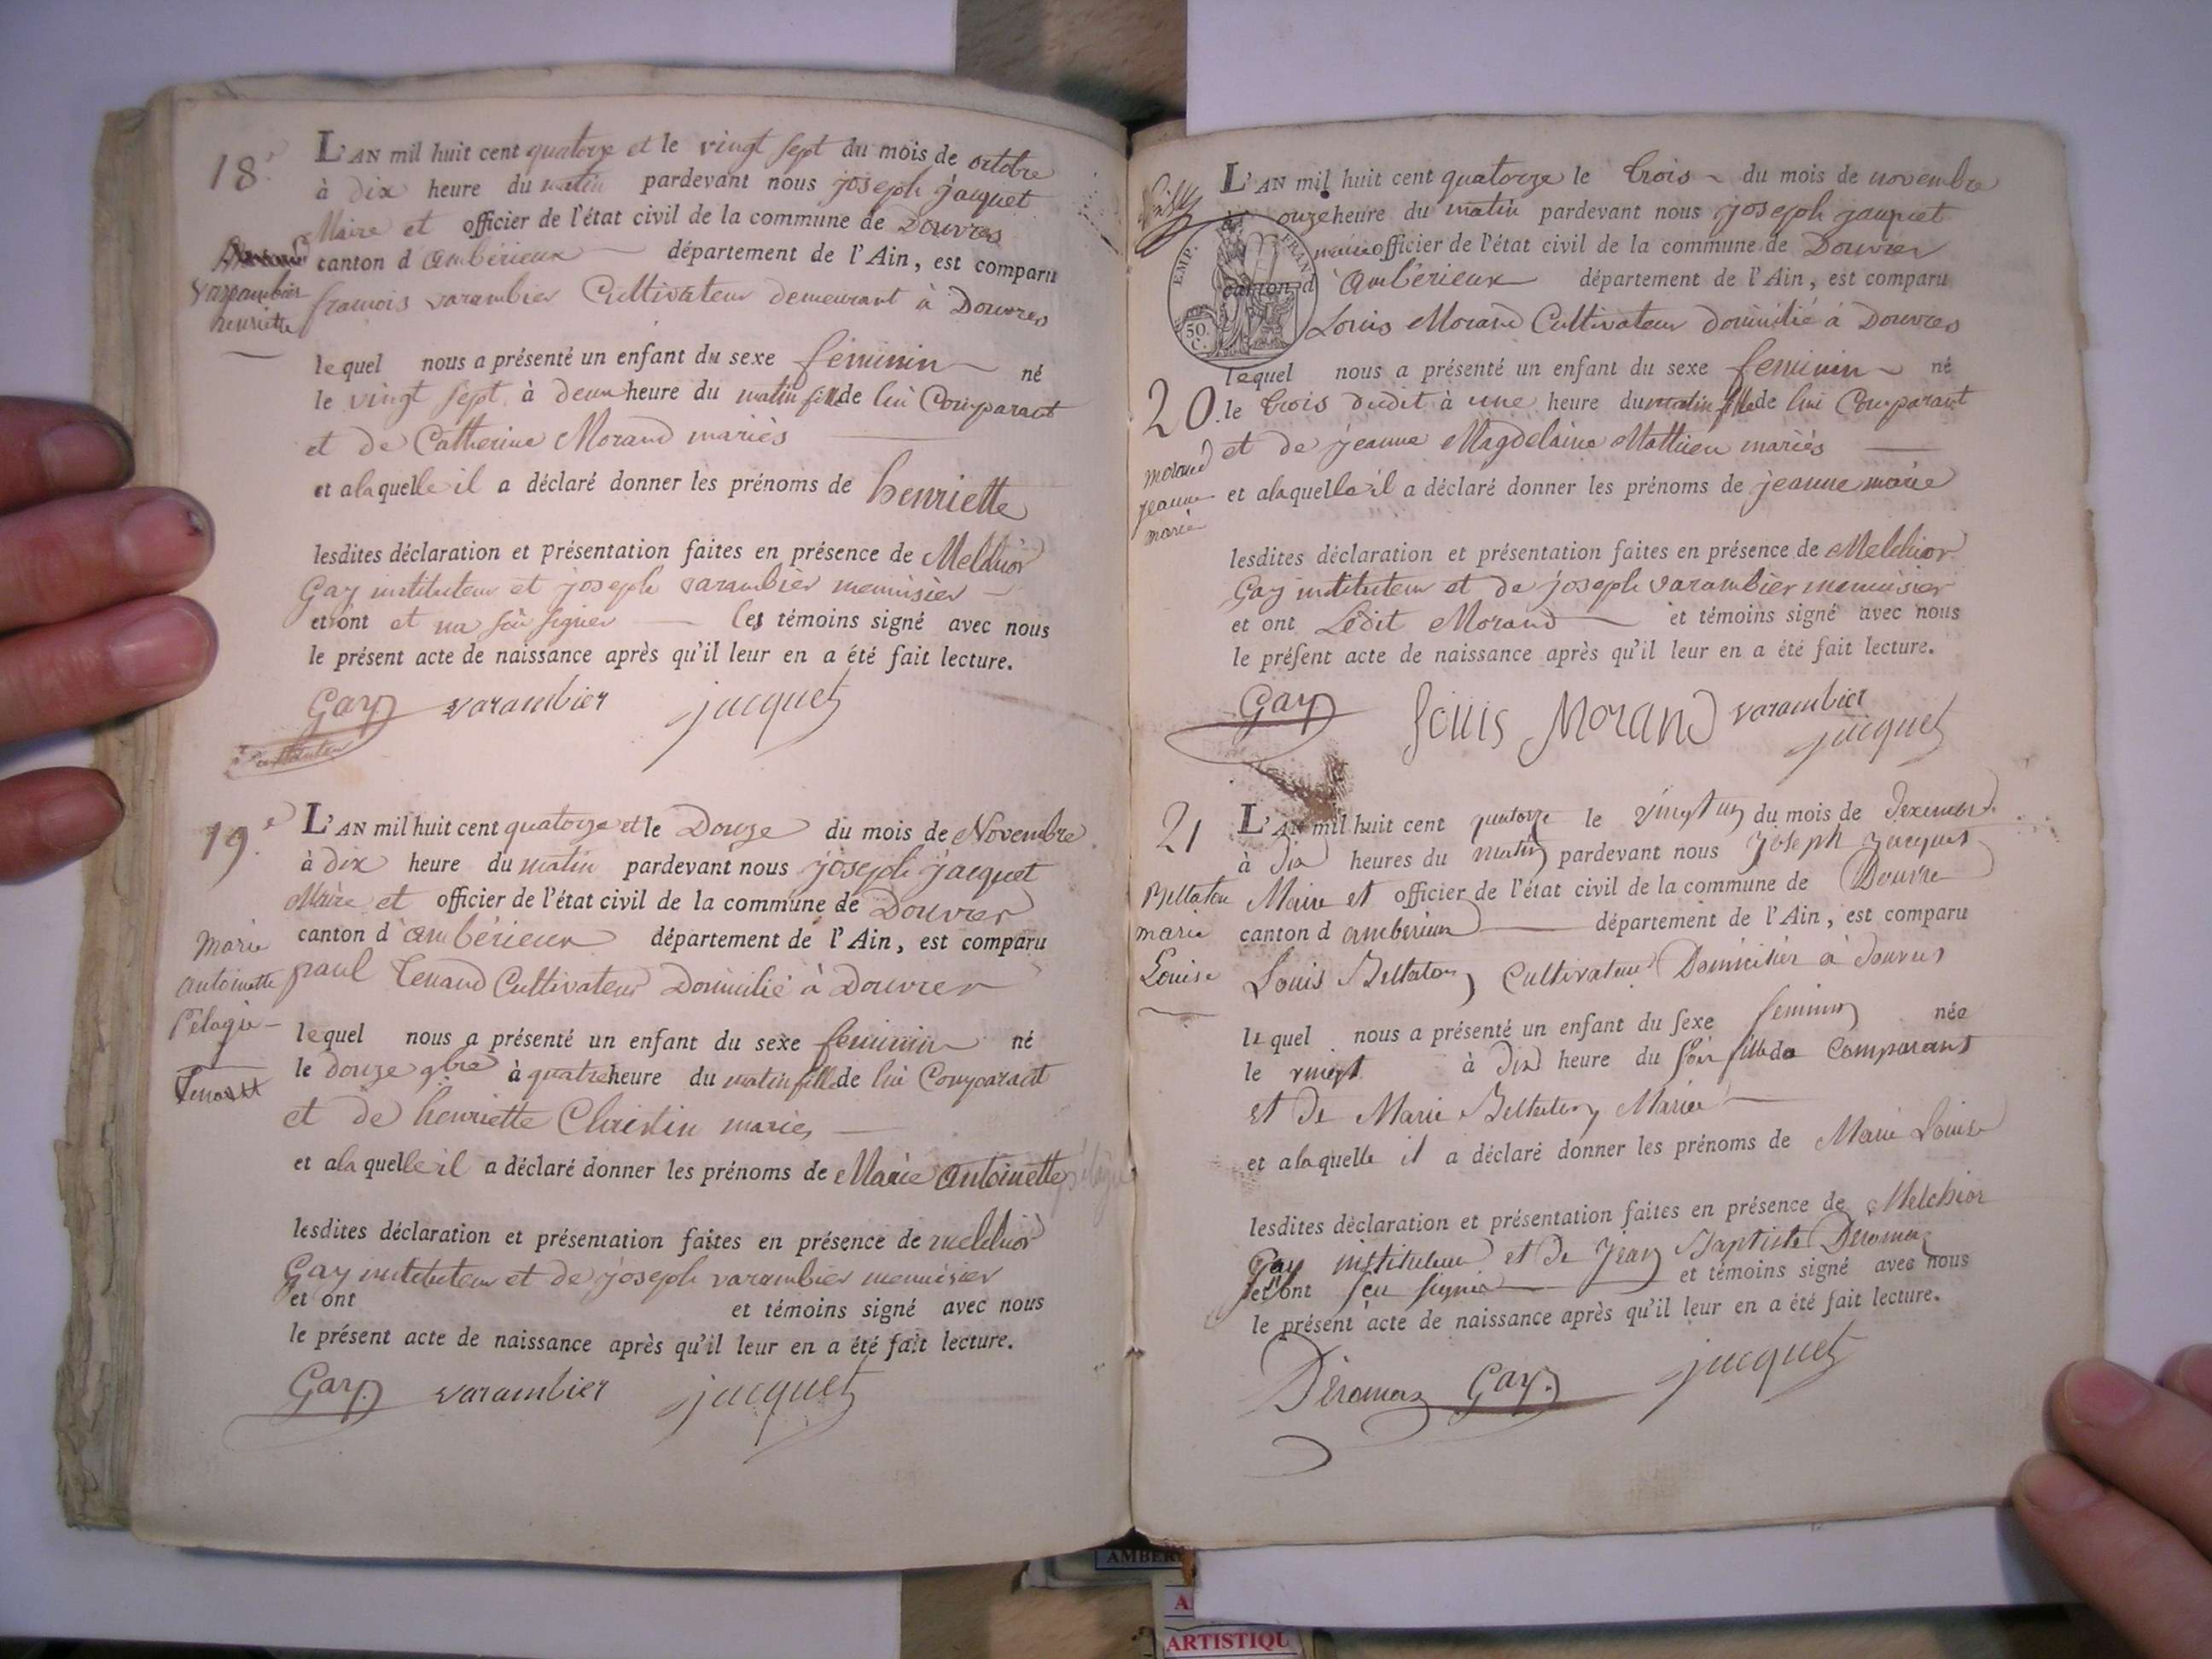 18.e
L'AN mil huit cent quatorze et le vingt sept du mois de octobre
à dix heure du matin pardevant nous joseph jacquet
Maire et officier de l'état civil de la commune de Douvres
canton d'ambérieux département de l'Ain, est comparu
varambier
henriette
francois varambier Cultivateur demeurant à Douvres
lequel nous a présenté un enfant du sexe féminin né
le vingt sept à deux heure du matin fille de lui Comparant
et de Catherine Morand mariés
et a laquelle il a déclaré donner les prénoms de henriette
lesdites déclaration et présentation faites en présence de Melchior
Gay instituteur et joseph varambier menuisier
et ont et na sçu signer les témoins signé avec nous
le présent acte de naissance après qu'il leur en a été fait lecture.
Gay varambier jacquet
19.e
L'AN mil huit cent quatorze et le Douze du mois de Novembre
à dix heure du matin pardevant nous joseph jacquet
Maire et officier de l'état civil de la commune de Douvres
canton d'ambérieux département de l'Ain, est comparu
Marie
antoinette
Pelagie
Tenand
paul Tenand Cultivateur Domicilié à Douvres
lequel nous a présenté un enfant du sexe feminin né
le douze 9bre à quatre heure du matin fille de lui Comparant
et de henriette mariés
et a la quelle il a déclaré donner les prénoms de Marie Antoinette pélagie
lesdites déclaration et présentation faites en présence de melchior
Gay instituteur et de joseph varambier menuisier
et ont et témoins signé avec nous
le présent acte de naissance après qu'il leur en a été fait lecture.
Gay. varambier jacquet
L'AN mil huit cent quatorze le trois du mois de novembre
à onze heure du matin pardevant nous joseph jacquet
maire officier de l'état civil de la commune de Douvres
canton d'Ambérieux département de l'Ain, est comparu
EMP. FRAN
50.
C.
Louis Morand Cultivateur domicilié à Douvres
lequel nous a présenté un enfant du sexe feminin né
20. le trois dudit à une heure du matin fille de lui Comparant
et de jeanne Magdelaine Mathieu mariés
morand
jeanne
marie
et a laquelle il a déclaré donner les prénoms de jeanne marie
lesdites déclaration et présentation faites en présence de Melchior
Gay instituteur et de joseph varambier menuisier
et ont Ledit Morand et témoins signé avec nous
le présent acte de naissance après qu'il leur en a été fait lecture.
Gay Louis Morand varambier
jacquet
21
L'AN mil huit cent quatorze le vingt un du mois de
à dix heures du matin pardevant nous joseph jacquet
Maire et officier de l'état civil de la commune de Douvre
canton d'ambérieux département de l'Ain, est comparu
Beltaton
marie
Louise
Louis Beltaton Cultivateur Domicilier à douvres
lequel nous a présenté un enfant du sexe feminin née
le vingt à dix heure du soir fille de Comparant
et de Marie Mariée
et a laquelle il a déclaré donner les prénoms de Marie Louise
lesdites déclaration et présentation faites en présence de Melchior
Gay instituteur et de Jean Baptiste Déromaz
et ont sçu signé et témoins signé avec nous
le présent acte de naissance après qu'il leur en a été fait lecture.
Déromaz Gay. jacquet
AMBER
A
ARTISTIQU